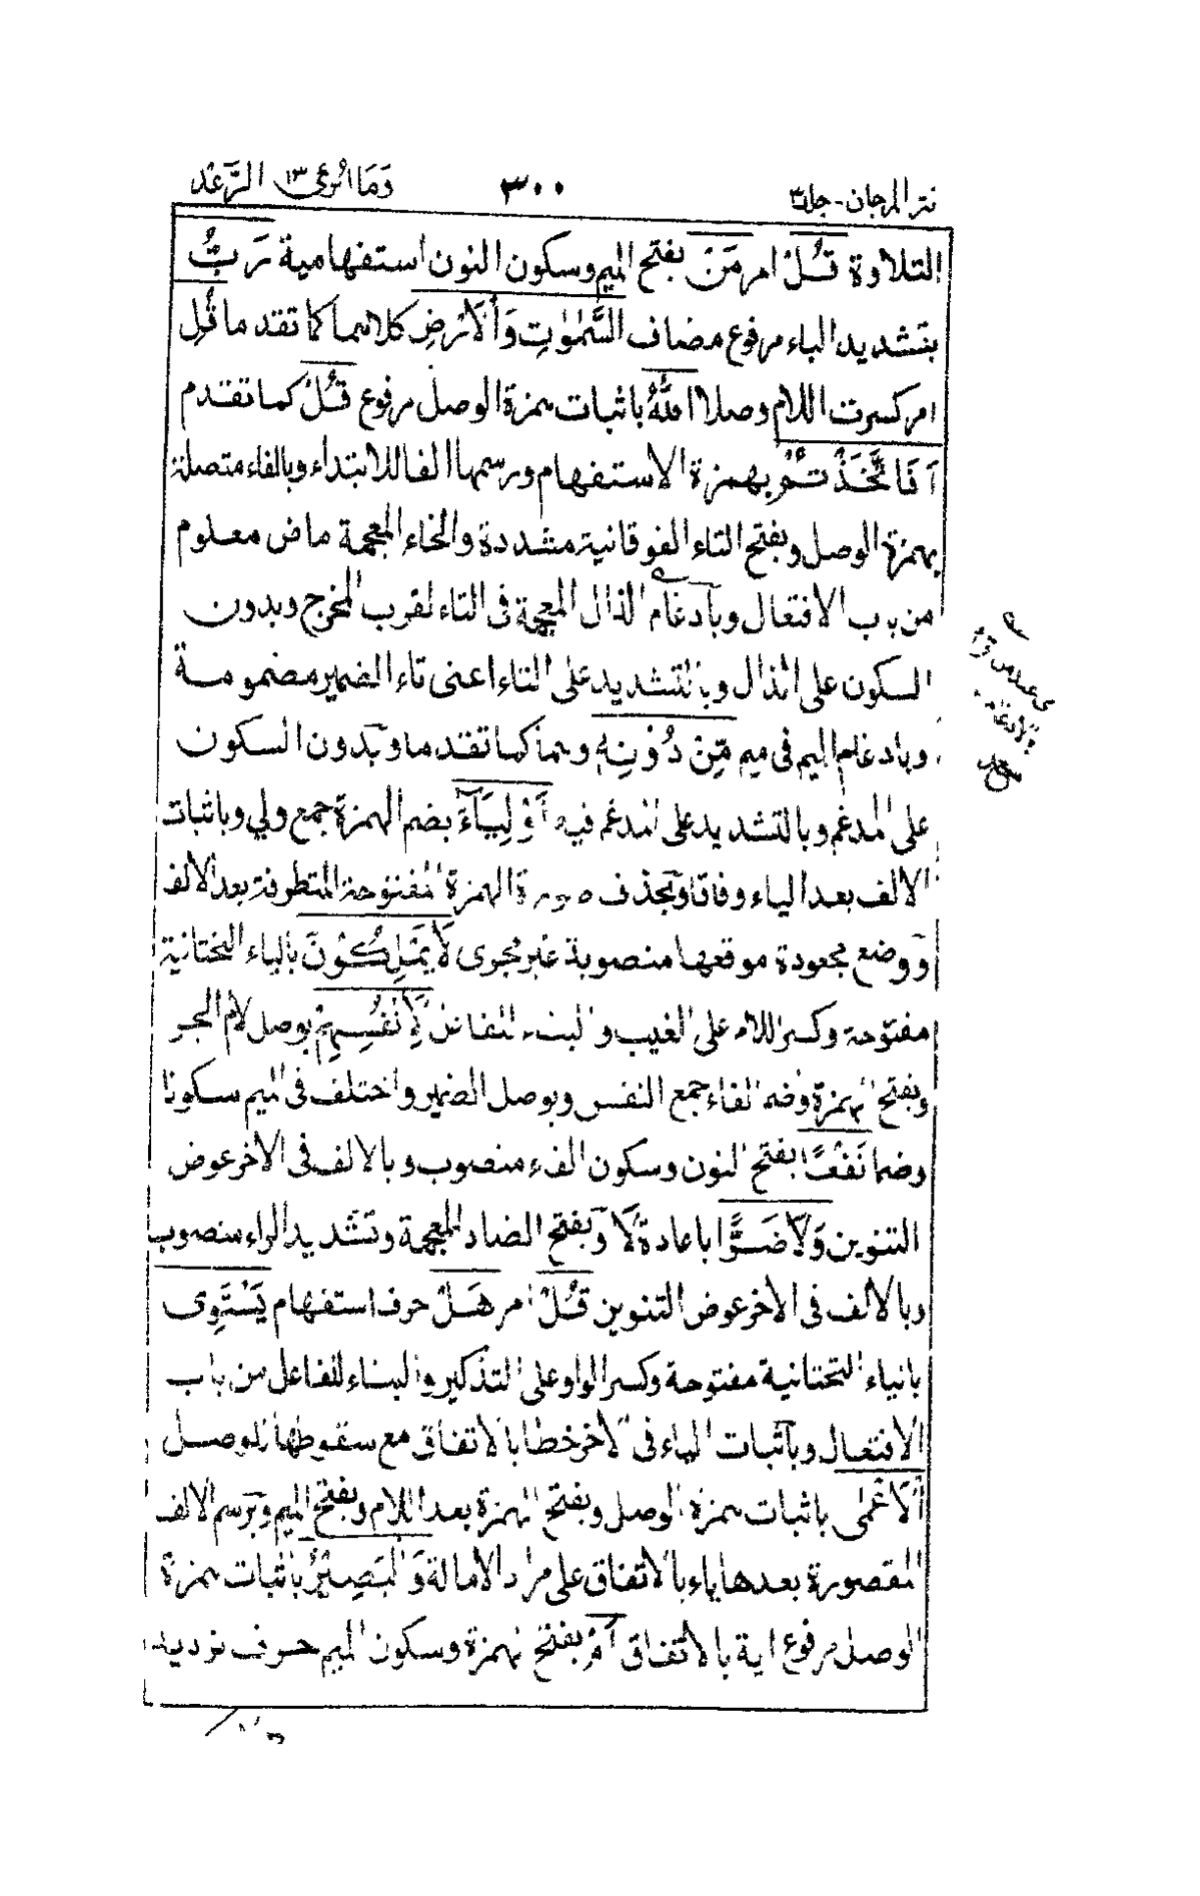 نثر المرجان - جلد ٣
٣٠٠
وَمَا أُبَرِّئُ ١٣ الرَّعْد
التلاوة قُلْ امر مَنْ بفتح الميم وسكون النون استفهامية رَبُّ
بتشديد الباء مرفوع مضاف السَّمٰوٰتِ وَالْاَرْضِ كلاهما كما تقدما قُلِ
امر كسرت اللام وصلا اللّٰهُ باثبات همزة الوصل مرفوع قُلْ كما تقدم
اَفَاتَّخَذْتُمْ بهمزة الاستفهام ورسمها الفا للابتداء وبالفاء متصلة
بهمزة الوصل وبفتح التاء الفوقانية مشددة والخاء المعجمة ماض معلوم
من باب الافتعال وبادغام الذال المعجمة فى التاء لقرب المخرج وبدون
السكون على الذال وبالتشديد على التاء اعنى تاء الضمير مضمومة
وبادغام الميم فى ميم مِّنْ دُوْنِهٖ وهما كما تقدما وبدون السكون
على المدغم وبالتشديد على المدغم فيه اَوْلِيَآءَ بضم الهمزة جمع ولي وباثبات
الالف بعد الياء وفاقا وبحذف صورة الهمزة المفتوحة المتطرفة بعد الالف
ووضع مجعودة موقعها منصوبة غير مجرى لَا يَمْلِكُوْنَ بالياء التحتانية
مفتوحة وكسر اللام على الغيب والبناء للفاعل لِاَنْفُسِهِمْ بوصل لام الجر
وبفتح الهمزة وضم الفاء جمع النفس وبوصل الضمير واختلف فى الميم سكونا
وضما نَفْعًا بفتح النون وسكون الفاء منصوب وبالالف فى الاخر عوض
التنوين وَلَا ضَرًّا باعادة لا وبفتح الضاد المعجمة وتشديد الراء منصوب
وبالالف فى الاخر عوض التنوين قُلْ امر هَلْ حرف استفهام يَسْتَوِى
بالياء التحتانية مفتوحة وكسر الواو على التذكير والبناء للفاعل من باب
الافتعال وباثبات الياء فى الاخر خطا بالاتفاق مع سقوطها للوصل
الْاَعْمٰى باثبات همزة الوصل وبفتح الهمزة بعد اللام وبفتح الميم وبرسم الالف
المقصورة بعدها ياء بالاتفاق على مراد الامالة وَالْبَصِيْرُ باثبات همزة
الوصل مرفوع اية بالاتفاق اَمْ بفتح الهمزة وسكون الميم حرف ترديد